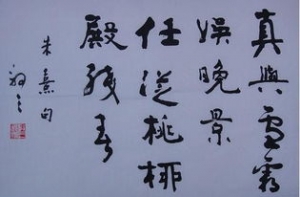 真與雪霜
娛晚景
任從桃柳
殿殘春
朱熹句